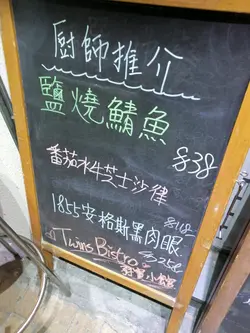 廚師推介
鹽燒鯖魚
$38
番茄水牛芝士沙律
$118
1855安格斯黑肉眼
$258
Twins Bistro
小館